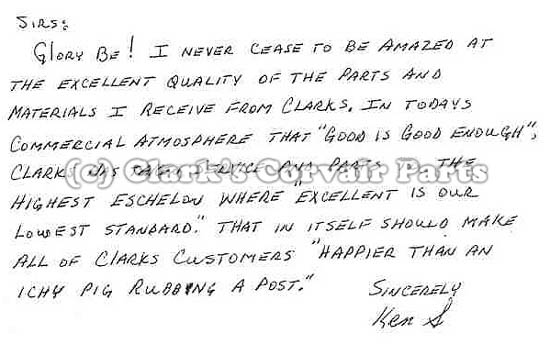 SIRS:
GLORY BE! I NEVER CEASE TO BE AMAZED AT
THE EXCELLENT QUALITY OF THE PARTS AND
MATERIALS I RECEIVE FROM CLARKS. IN TODAYS
COMMERCIAL ATMOSPHERE THAT "GOOD IS GOOD ENOUGH",
CLARKS HAS PARTS THE
(c) Clark's Corvair Parts
HIGHEST ESCHELON WHERE "EXCELLENT IS OUR
LOWEST STANDARD." THAT IN ITSELF SHOULD MAKE
ALL OF CLARKS CUSTOMERS "HAPPIER THAN AN
ICHY PIG RUBBING A POST."
SINCERELY
Ken S